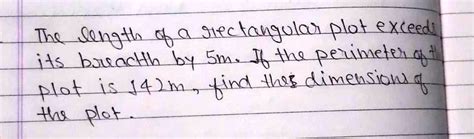 The length of a rectangular plot exceeds
its breadth by 5m. If the perimeter of the
plot is 142m, find the dimensions of
the plot.